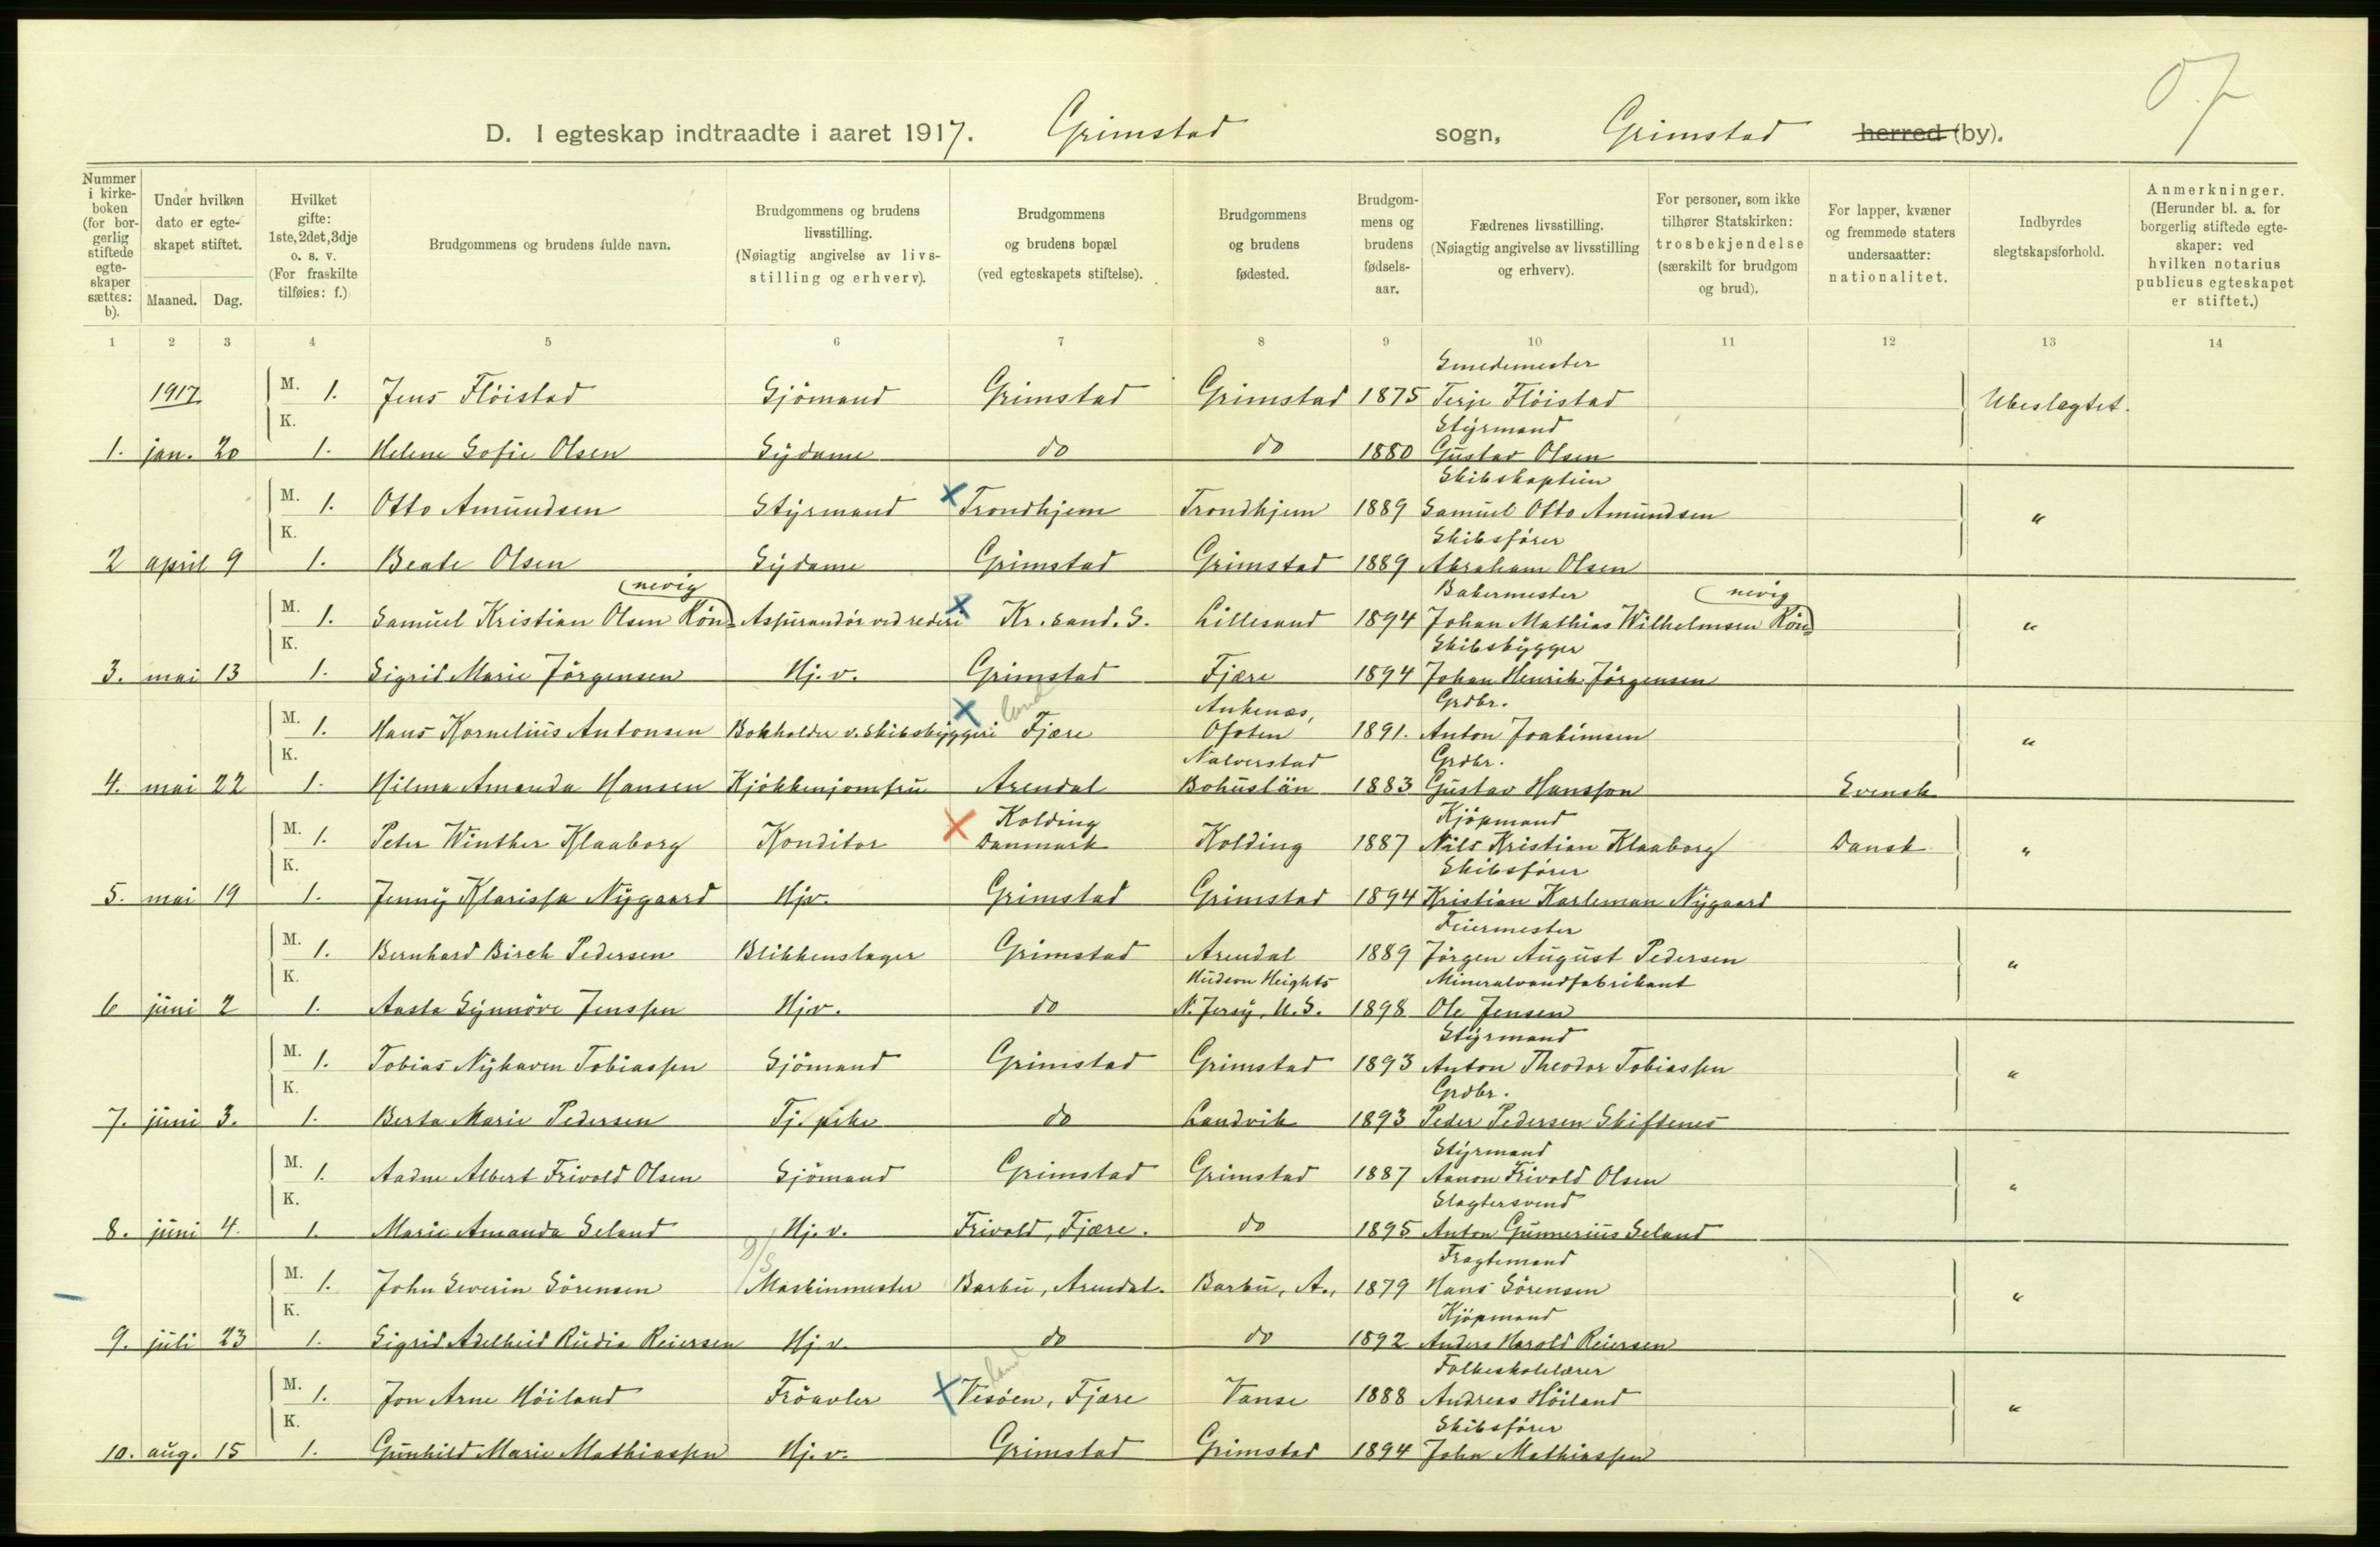 O.7
D. I egteskap indtraadte i aaret 1917. Grimstad sogn, Grimstad herred (by).
Nummer i kirkeboken (for borgerlig stiftede egteskaper sættes: b).
Under hvilken dato er egteskapet stiftet.
Maaned. Dag.
Hvilket gifte: 1ste, 2det, 3dje o. s. v. (For fraskilte tilføies: f.)
Brudgommens og brudens fulde navn.
Brudgommens og brudens livsstilling. (Nøiagtig angivelse av livsstilling og erhverv).
Brudgommens og brudens bopæl (ved egteskapets stiftelse).
Brudgommens og brudens fødested.
Brudgommens og brudens fødselsaar.
Fædrenes livsstilling. (Nøiagtig angivelse av livsstilling og erhverv).
For personer, som ikke tilhører Statskirken: trosbekjendelse (særskilt for brudgom og brud).
For lapper, kvæner og fremmede staters undersaatter: nationalitet.
Indbyrdes slegtskapsforhold.
Anmerkninger. (Herunder bl. a. for borgerlig stiftede egteskaper: ved hvilken notarius publicus egteskapet er stiftet.)
1 2 3 4 5 6 7 8 9 10 11 12 13 14
Smedemester
1917. M. 1. Jens Flöistad Sjömand Grimstad Grimstad 1875 Terje Flöistad Ubeslagtet.
K. Styrmand
1. jan. 20 1. Helene Sofie Olsen Sydame do do 1880 Gustav Olsen
Skibskaptein
M. 1. Otto Amundsen Styrmand Trondhjem Trondhjem 1889 Samuel Otto Amundsen "
K. Skibsfører
2 april 9 1. Beate Olsen Sydame Grimstad Grimstad 1889 Abraham Olsen
(nevig Bakermester (nevig
M. 1. Samuel Kristian Olsen Rön= Aspirandör ved rederi Kr.sand. S. Lillesand 1894 Johan Mathias Wilhelmsen Rön= "
K. Skibsbygger
3. mai 13 1. Sigrid Marie Jörgensen Hj. v. Grimstad Fjære 1894 Johan Henrik Jörgensen
Land Ankenæs, Grdbr.
M. 1. Hans Kornelius Antonsen Bokholder v. Skibsbyggeri Fjære Ofoten 1891. Anton Joakimsen "
K. Nalverstad Grdbr.
4. mai 22 1. Hilma Amanda Hansen Kjökkenjomfru Arendal Bohuslän 1883 Gustav Hansson Svensk
Kolding Kjöpmand
M. 1. Peter Winther Klaaborg Konditor Danmark Kolding 1887 Nils Kristian Klaaborg Dansk "
K. Skibsfører
5. mai 19 1. Jenny Klarissa Nygaard Hjv. Grimstad Grimstad 1894 Kristian Karleman Nygaard
Feiermester
M. 1. Bernhard Birch Pedersen Blikkenslager Grimstad Arendal 1889 Jörgen August Pedersen "
K. Hudson Heights Mineralvandfabrikant
6 juni 2 1. Aasta Synnöve Jenssen Hjv. do N. Jersy, U.S. 1898 Ole Jensen
Styrmand
M. 1. Tobias Nyhaven Tobiassen Sjömand Grimstad Grimstad 1893 Anton Theodor Tobiassen "
K. Grdbr.
7. juni 3. 1. Berta Marie Pedersen Tj. pike do Landvik 1893 Peder Pedersen Skiftenes
Styrmand
M. 1. Aadne Albert Frivold Olsen Sjömand Grimstad Grimstad 1887 Aanon Frivold Olsen "
K. Slagtersvend
8. juni 4. 1. Marie Amanda Seland Hj. v. Frivold, Fjære. do 1895 Anton Gunnerius Seland
D/S Fragtemand
M. 1. John Severin Sörensen Maskinmester Barbu, Arendal. Barbu, A., 1879 Hans Sörensen "
K. Kjöpmand
9. juli 23 1. Sigrid Adelheid Rudia Reiersen Hj. v. do do 1892 Anders Harold Reiersen
Land Folkeskolelærer
M. 1. Jon Arne Höiland Fröavler Vesöen, Fjære Vanse 1888 Andreas Höiland "
K. Skibsfører
10. aug. 15 1. Gunhild Marie Mathiassen Hj. v. Grimstad Grimstad 1894 John Mathiassen